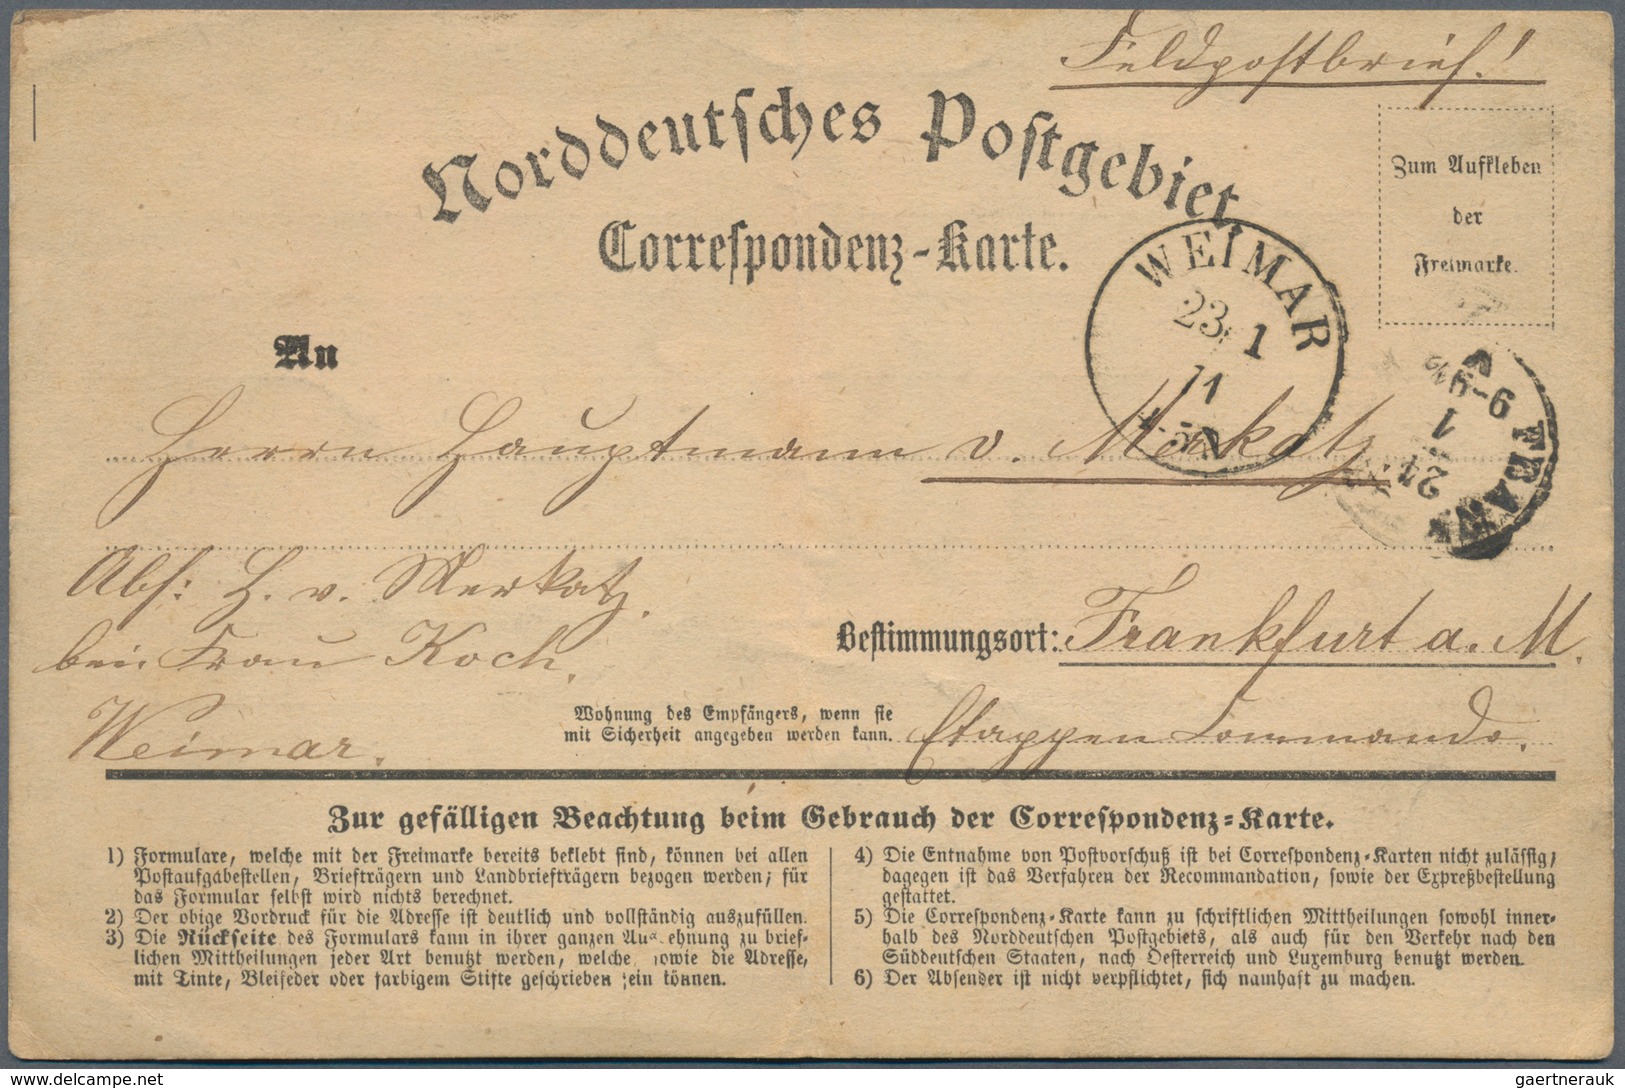 Feldpostbrief!
Norddeutsches Postgebiet
Correspondenz-Karte.
Zum Aufkleben
der
Freimarke.
WEIMAR
23 1
71
An
Herrn Hauptmann v. Merkatz,
Abs: H. v. Merkatz.
bei Frau Koch,
Weimar.
Bestimmungsort: Frankfurt a. M.
Wohnung des Empfängers, wenn sie
mit Sicherheit angegeben werden kann. Etappen Commando.
Zur gefälligen Beachtung beim Gebrauch der Correspondenz-Karte.
1) Formulare, welche mit der Freimarke bereits beklebt sind, können bei allen
Postaufgabestellen, Briefträgern und Landbriefträgern bezogen werden; für
das Formular selbst wird nichts berechnet.
2) Der obige Vordruck für die Adresse ist deutlich und vollständig auszufüllen.
3) Die Rückseite des Formulars kann in ihrer ganzen Ausdehnung zu brief-
lichen Mittheilungen jeder Art benutzt werden, welche sowie die Adresse,
mit Tinte, Bleifeder oder farbigem Stifte geschrieben sein können.
4) Die Entnahme von Postvorschuß ist bei Correspondenz-Karten nicht zulässig;
dagegen ist das Verfahren der Recommandation, sowie der Expreßbestellung
gestattet.
5) Die Correspondenz-Karte kann zu schriftlichen Mittheilungen sowohl inner-
halb des Norddeutschen Postgebiets, als auch für den Verkehr nach den
Süddeutschen Staaten, nach Oesterreich und Luxemburg benutzt werden.
6) Der Absender ist nicht verpflichtet, sich namhaft zu machen.
© www.delcampe.net
gaertnerauk